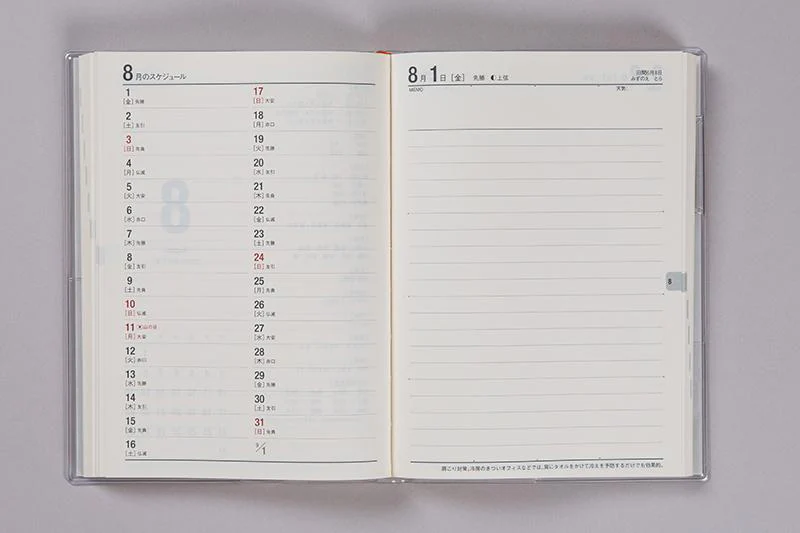 8月のスケジュール
1
[金] 先勝
2
[土] 友引
3
[日] 先負
4
[月] 仏滅
5
[火] 大安
6
[水] 赤口
7
[木] 先勝
8
[金] 友引
9
[土] 先負
10
[日] 仏滅
11 山の日
[月] 大安
12
[火] 赤口
13
[水] 先勝
14
[木] 友引
15
[金] 先負
16
[土] 仏滅
17
[日] 大安
18
[月] 赤口
19
[火] 先勝
20
[水] 友引
21
[木] 先負
22
[金] 仏滅
23
[土] 先勝
24
[日] 友引
25
[月] 先負
26
[火] 仏滅
27
[水] 大安
28
[木] 赤口
29
[金] 先勝
30
[土] 友引
31
[日] 先負
9/1
8月1日 [金] 先勝 上弦
旧閏6月8日
みずのえ とら
MEMO 天気
8
肩こり対策。冷房のきついオフィスなどでは、肩にタオルをかけて冷えを予防するだけでも効果的。